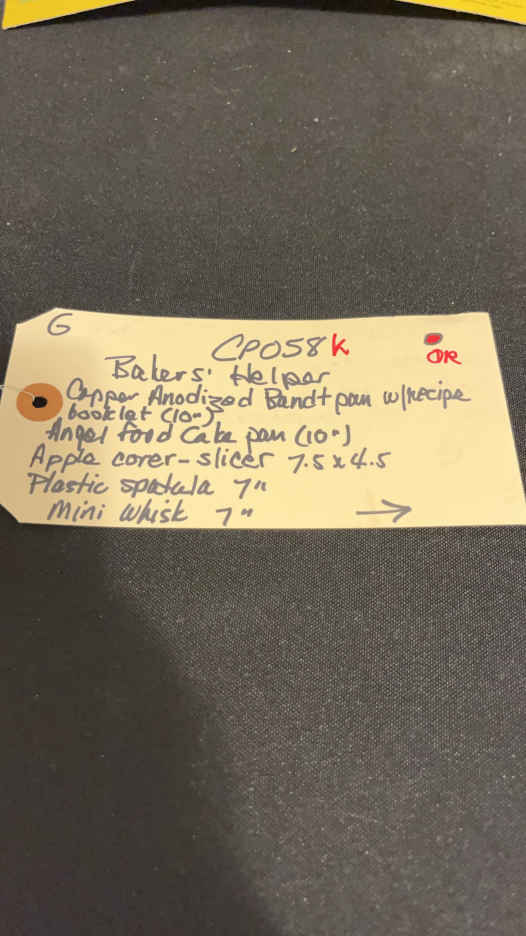 G
CP058K
OR
Bakers' Helper
Copper Anodized Bundt pan w/recipe
booklet (10")
Angel food Cake pan (10")
Apple corer-slicer 7.5x4.5
Plastic spatula 7"
Mini Whisk 7"